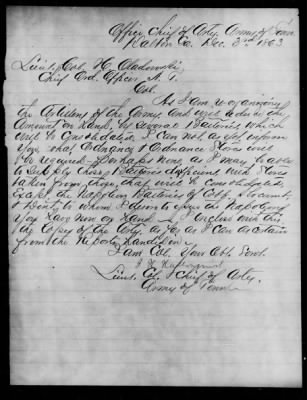 Office Chief of Arty, Army of Tenn
Dalton Ga. Dec. 3rd 1863
Lieut. Col. H. Oladowski
Chief Ord. Officer A. T.
Col.
As I am reorganizing
the Artillery of the Army and will reduce the
Amount on hand, by several Batteries which
will be Consolidated, I can not as yet inform
you, what Ordnance & Ordnance Stores will
be required - Perhaps none, as I may be able
to Supply those Batteries deficient with Stores
taken from those, that will be Consolidated,
Except the Napoleon Batteries of
to whom I desire to give the Napoleons
you have now on hand. I enclose with this
the Copy of the Arty. as far as I can ascertain
from the Reports handed in
I am Col. Your Obt. Servt.
Lieut. Col. & Chief of Arty.
Army of Tenn